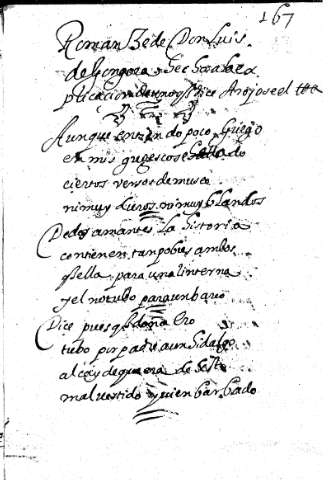 167
Romançe de Don Luis
de Gongora y hecho a la
plicacion de uno q̃ dice Arojose el
Aunque entiendo poco griego
en mis gregescos e hallado
ciertos versos de museo
ni muy duros ni muy blandos
De dos amantes la historia
contienen tan pobres ambos
q̃ ella para una linterna
y el no tubo para un barco
Dice pues q̃ doña Ero
tubo por padre a un hidalgo
alcayde que era de Sesto
mal vestido y bien barbado